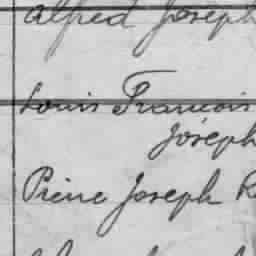 Alfred Joseph
Louis Francois
Joseph
Pierre Joseph